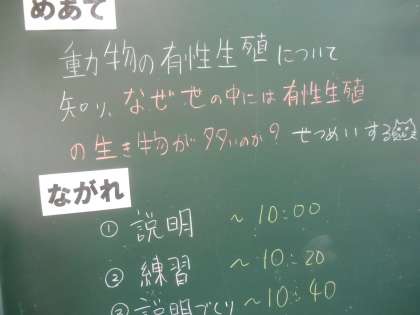 めあて
動物の有性生殖について
知り、なぜ世の中には有性生殖
の生き物が多いのか？せつめいする
ながれ
① 説明 ～10:00
② 練習 ～10:20
③ 説明づくり ～10:40